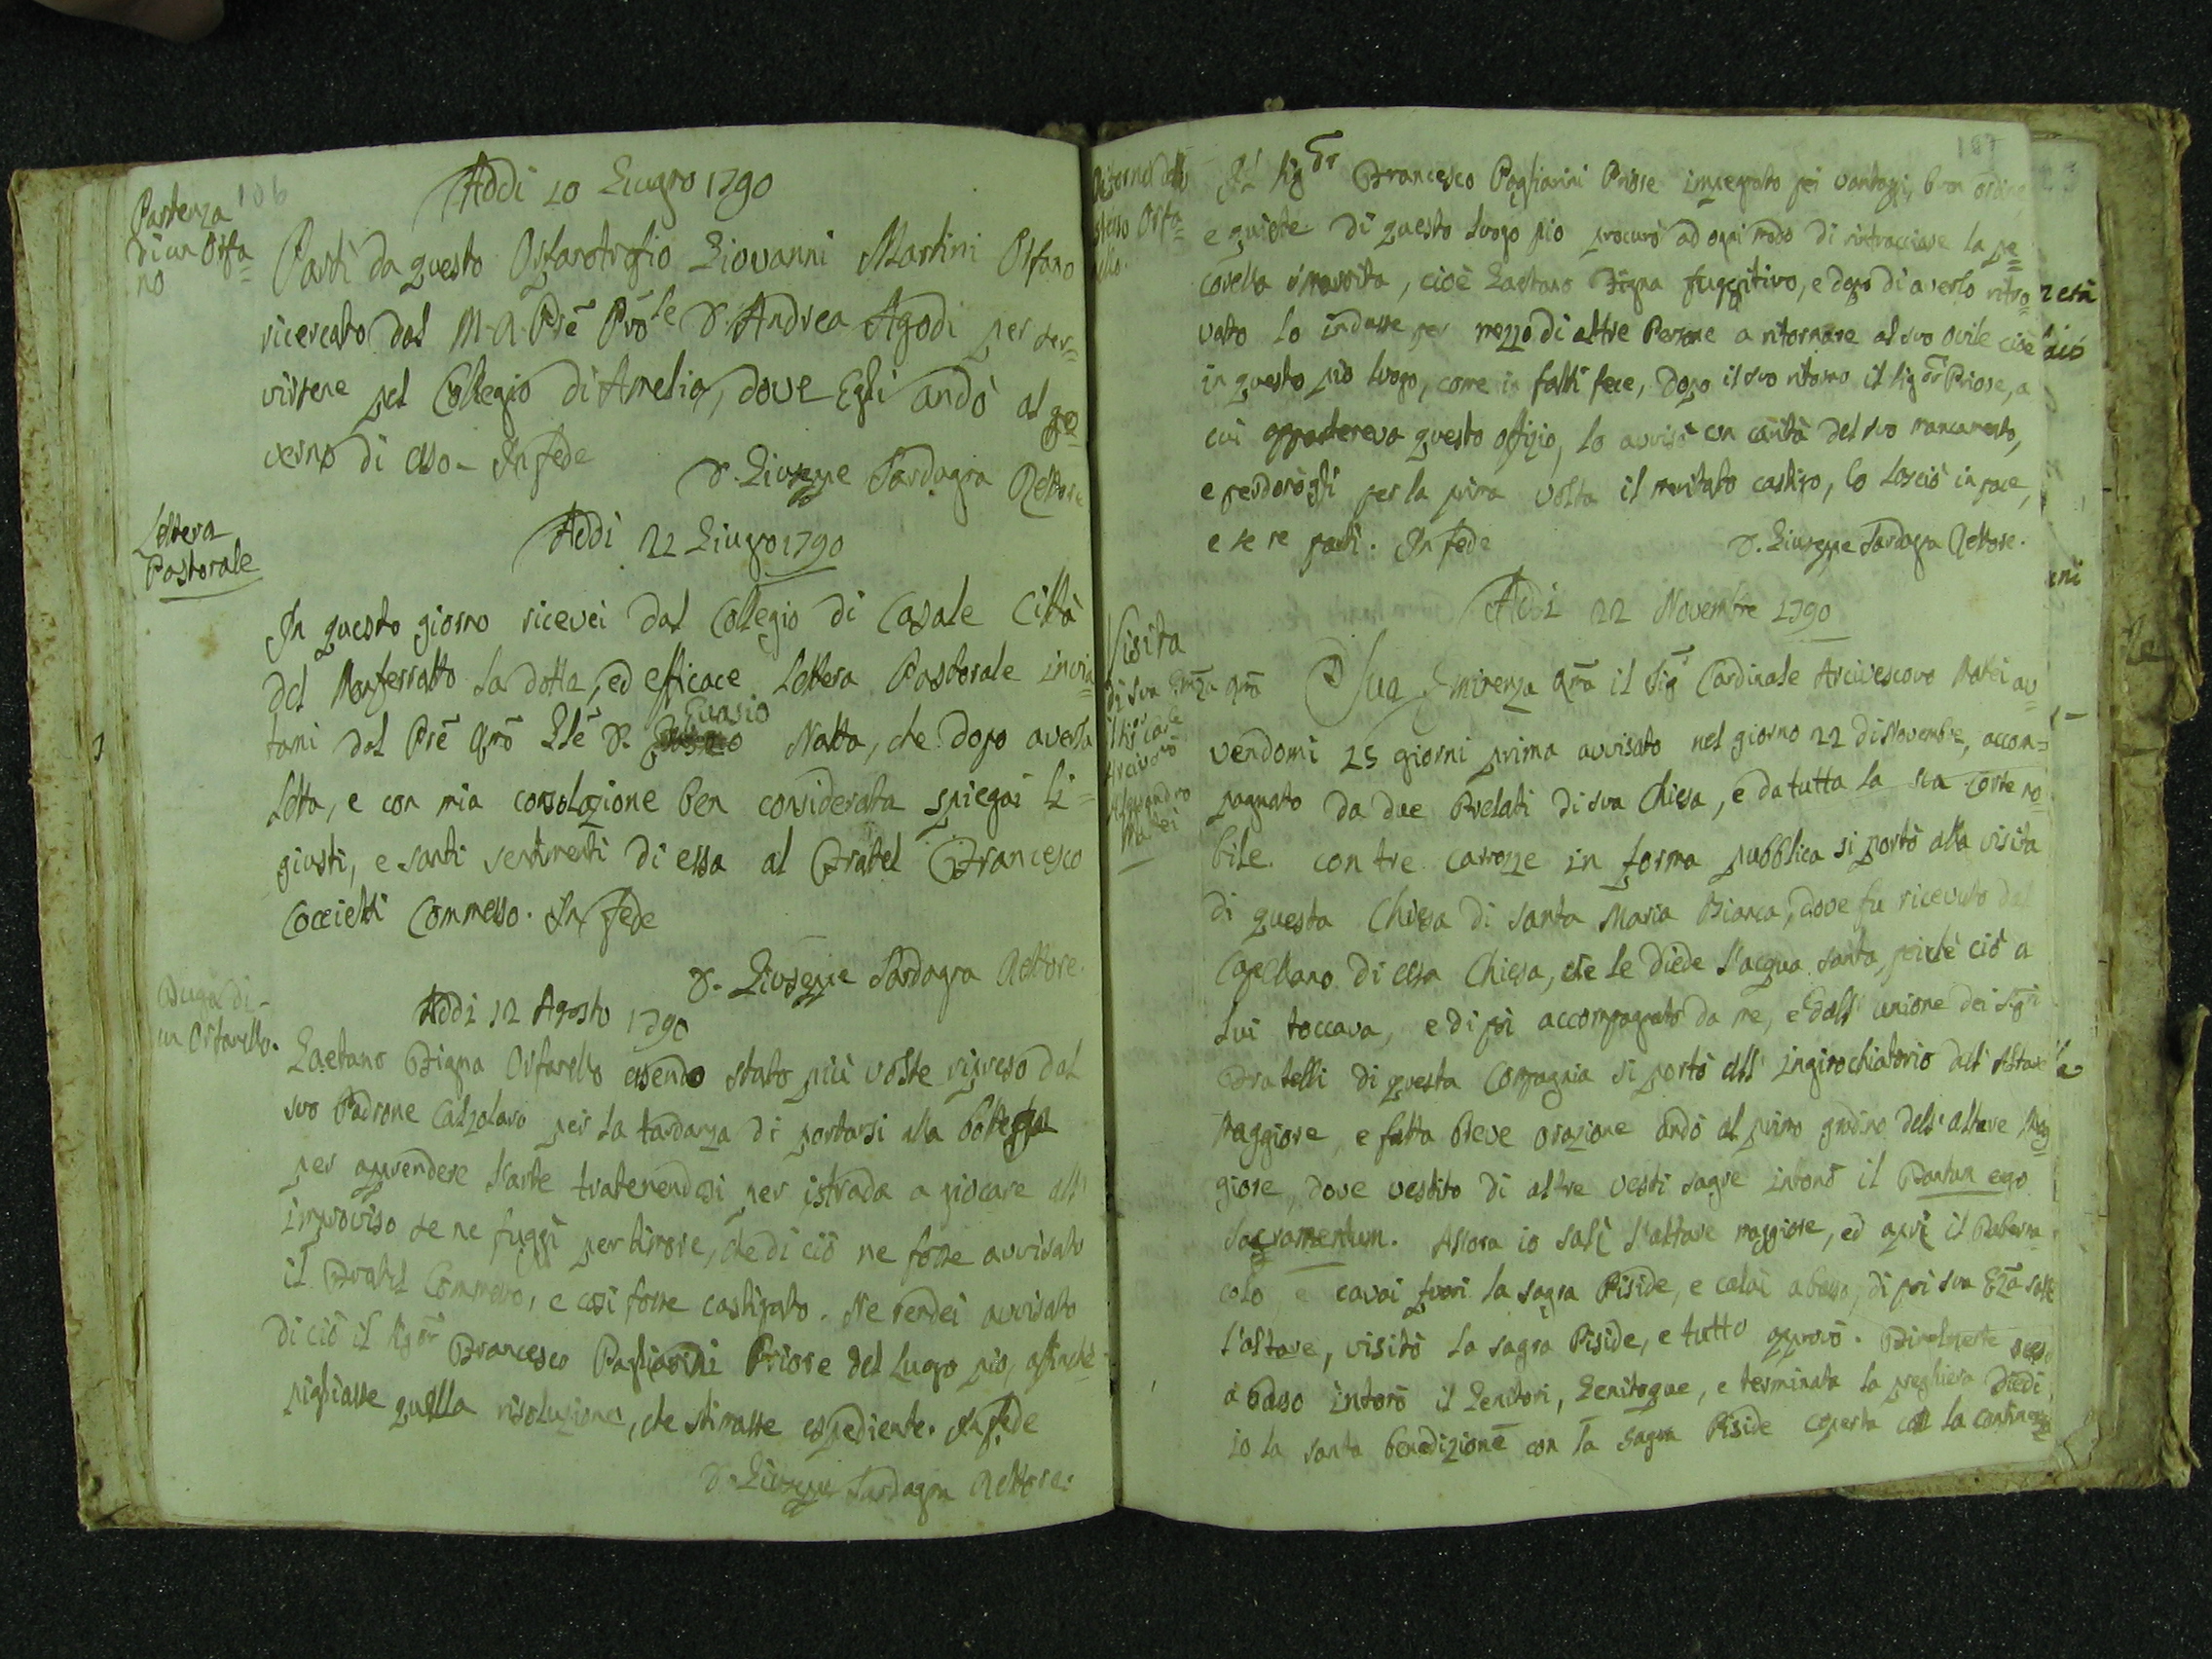 106
Partenza
di un Orfa=
no
Addi 10 Giugno 1790
Partì da questo Orfanotrofio Giovanni Martini Orfano
ricercato dal M. A. Prē Prōle D. Andrea Agodi per ser=
virsene pel Collegio di Amelia, dove Egli andò al go=
verno di esso - In fede
D. Giuseppe Sardagna Rettore
Lettera
Pastorale
Addi 22 Giugno 1790
In questo giorno ricevei dal Collegio di Casale Città
del Monferratto la dotta, ed efficace Lettera Pastorale invia
tami dal Prē Rmō Glē D. Evasio Natta, che dopo averla
letta, e con mia consolazione ben considerata spiegai li=
giusti, e santi sentimenti di essa al Fratel Francesco
Coccietti Commesso. In fede
D. Giuseppe Sardagna Rettore.
Fuga di
un Orfanello.
Addi 12 Agosto 1790
Gaetano Figna Orfanello essendo stato più volte ripreso dal
suo Padrone Calzolaro per la tardanza di portarsi alla bottega
per apprendere l'arte tratenendosi per istrada a giocare all'
improviso se ne fuggì per timore, che di ciò ne fosse avvisato
il Fratel Commesso, e così fosse castigato. Ne rendei avvisato
di ciò il Sigōr Francesco Pagliarini Priore del Luogo pio, affinchè
pigliasse quella risoluzione, che stimasse espediente. In fede
D. Giuseppe Sardagna Rettore.
107
Ritorno dello
stesso Orfa=
nello.
Il Sigōr Francesco Pagliarini Priore impegnato pei vantaggi, buon ordine
e quiete di questo Luogo pio procurò ad ogni modo di rintracciare la pe=
corella smarrita, cioè Gaetano Figna fuggitivo, e dopo di averlo ritro=
vato lo indusse per mezzo di altre Persone a ritornare al suo ovile cioè
in questo pio luogo, come in fatti fece, dopo il suo ritorno il Sigōr Priore, a
cui apparteneva questo offizio, lo avvisò con carità del suo mancamento,
e perdonògli per la prima volta il meritato castigo, lo lasciò in pace,
e se ne partì. In fede
D. Giuseppe Sardagna Rettore.
Addi 22 Novembre 1790
Visita
di Sua Emza Rmā
il Sigr Carle
Arcivovo
Alessandro
Matei
Sua Eminenza Rmā il Sigr Cardinale Arcivescovo Matei av=
vendomi 25 giorni prima avvisato nel giorno 22 di Novembre, accom=
pagnato da due Prelati di sua Chiesa, e da tutta la sua Corte no=
bile con tre carrozze in forma pubblica si portò alla visita
di questa Chiesa di Santa Maria Bianca, dove fu ricevuto dal
Capellano di essa Chiesa, che le diede l'acqua santa, poichè ciò a
lui toccava, e di poi accompagnato da me, e dall'unione dei Sigri
Fratelli di questa Compagnia si portò all'inginochiatorio dell'Altare
Maggiore, e fatta breve orazione andò al primo gradino dell'altare Mag=
giore, dove vestito di altre vesti sagre intonò il Tantum ego
Sacramentum. Allora io salì l'altare maggiore, ed aprì il Taberna=
colo, e cavai fuori la sagra Piside, e calai abasso, di poi sua Ezā salì
l'altare, visitò la sagra Piside, e tutto approvò. Finalmente sceso
a basso intonò il Genitori, Genitoque, e terminata la preghiera diedi
io la santa benedizione con la sagra Piside coperta con la continenza